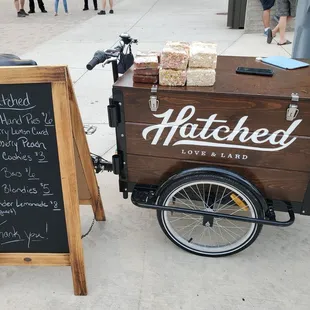 Hatched
Hand Pies 6
Lemon Curd
Peach
Cookies 3
Bars 5
Blondies 5
Lemonade
Thank you!
Hatched
LOVE & LARD